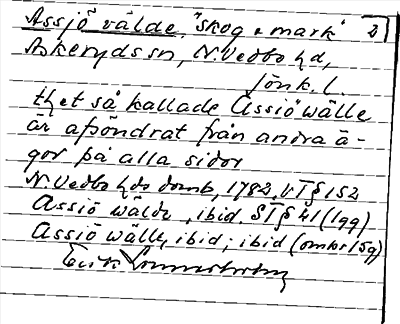 Assjö välde, "skog o mark" 2)
Askeryds sn, N. Vedbo hd,
Jönk. l.
thet så kallade Assiöwälle
är afsöndrat från andra ä-
gor på alla sidor
N. Vedbo hds domb, 1782. VT § 152
Assiö wälde, ibid. ST § 41 (1gg)
Assiö wälle, ibid; ibid (omkr 15g)